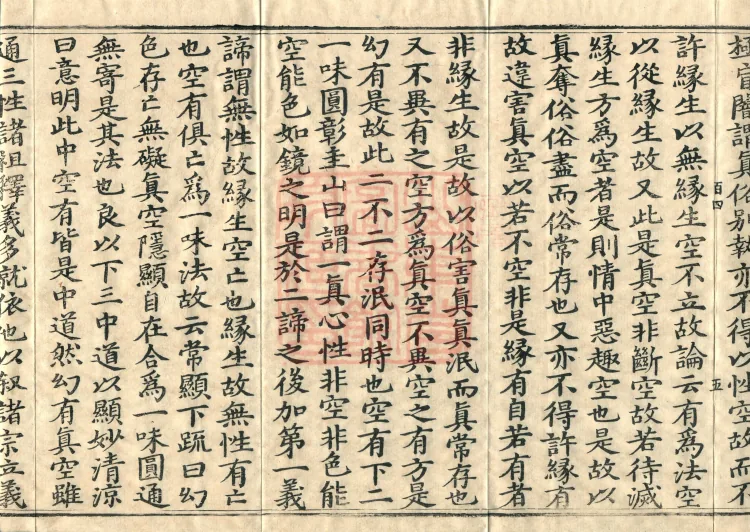 許緣生以無緣生空不立故論云有為法空
以從緣生故又此是眞空非斷空故若待滅
緣生方為空者是則情中惡趣空也是故以
眞奪俗俗盡而俗常存也又亦不得許緣有
故違害眞空以若不空非是緣有自若有者
非緣生故是故以俗害眞眞泯而眞常存也
又不異有之空方為眞空不異空之有方是
幻有是故此二不一存泯同時也空有下二
一味圓彰圭山曰謂一眞心性非空非色能
空能色如鏡之明是於二諦之後加第一義
諦謂無性故緣生空亡也緣生故無性有亡
也空有俱亡為一味法故云常顯下疏曰幻
色存亡無礙眞空隱顯自在合為一味圓通
無寄是其法也良以下三中道以顯妙清涼
曰意明此中空有皆是中道然幻有眞空雖
通三性諸祖釋義多就依他以叙諸宗立義
百四
五